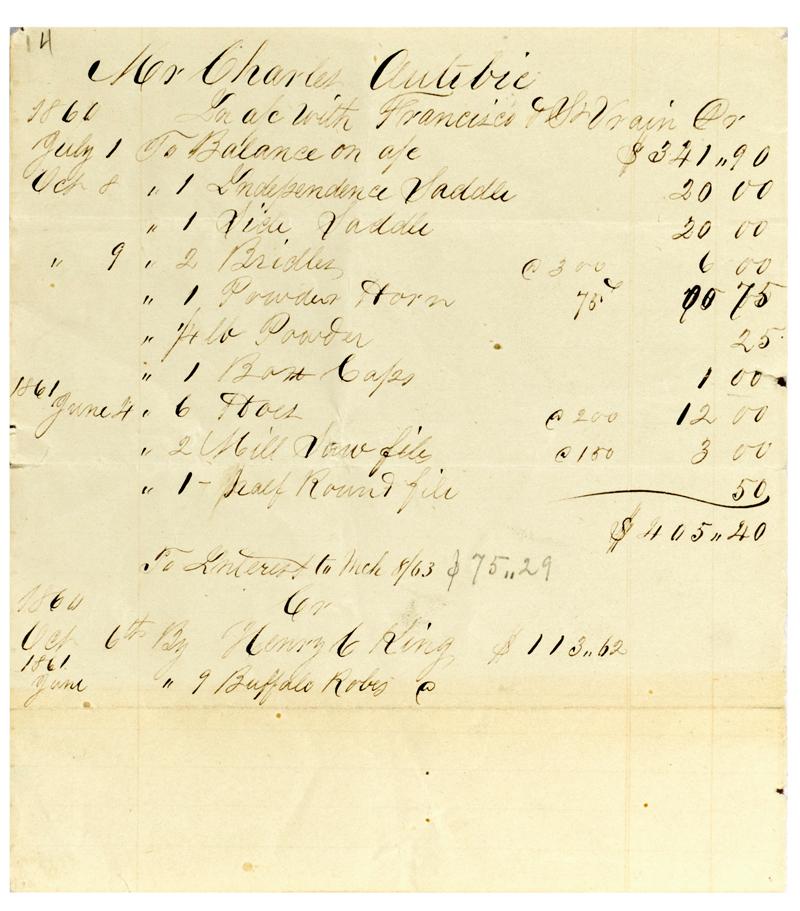 14
Mr Charles Autibie
1860 In a/c with Francisco & St Vrain Dr
July 1 To Balance on a/c $341,,90
Oct 8 " 1 Independence Saddle 20 00
" 1 Side Saddle 20 00
" 9 " 2 Bridles @ 300 6 00
" 1 Powder Horn 75 75
" 1/4 lb Powder 25
" 1 Box Caps 1 00
1861
June 4 " 6 Hoes @ 200 12 00
" 2 Mill Saw file @ 150 3 00
" 1 - half Round file 50
$405,,40
To Interest to Mch 8/63 $75,,29
1860 Cr
Oct 6th By Henry C King $113,,62
1861
June " 9 Buffalo Robes @